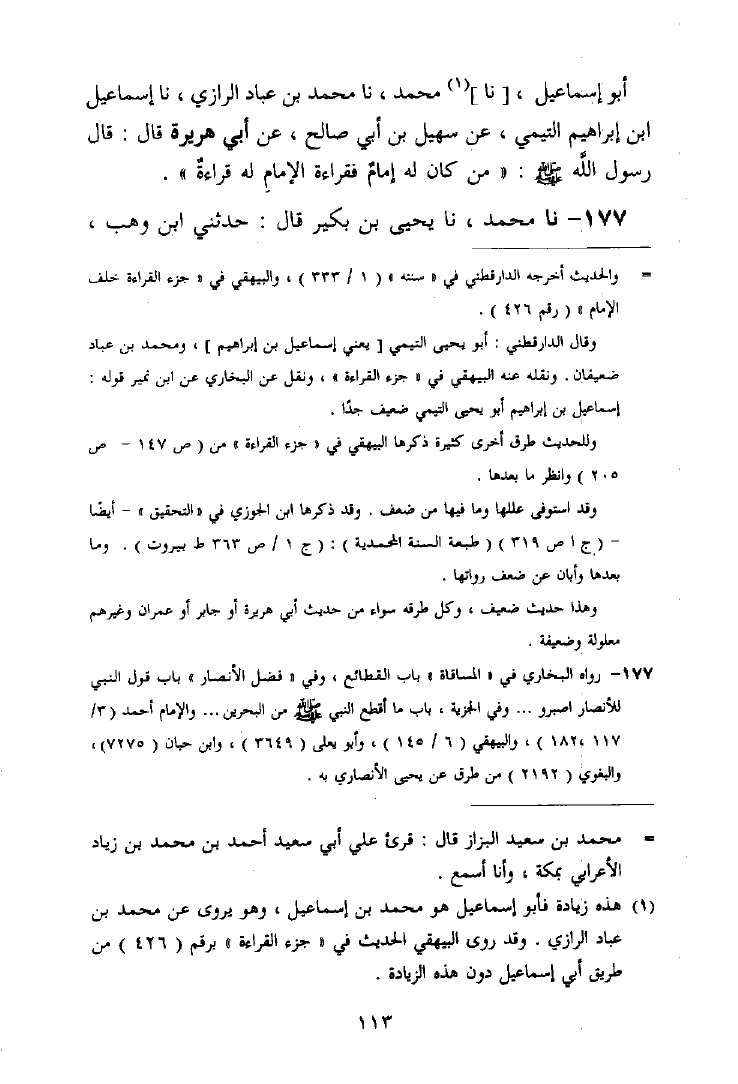 أبو إسماعيل ، [ نا ](١) محمد ، نا محمد بن عباد الرازي ، نا إسماعيل
ابن إبراهيم التيمي ، عن سهيل بن أبي صالح ، عن أبي هريرة قال : قال
رسول اللَّه ﷺ : « من كان له إمامٌ فقراءة الإمامِ له قراءةٌ » .
١٧٧- نا محمد ، نا يحيى بن بكير قال : حدثني ابن وهب ،
= والحديث أخرجه الدارقطني في « سننه » ( ١ / ٣٣٣ ) ، والبيهقي في « جزء القراءة خلف
الإمام » ( رقم ٤٢٦ ) .
وقال الدارقطني : أبو يحيى التيمي [ يعني إسماعيل بن إبراهيم ] ، ومحمد بن عباد
ضعيفان . ونقله عنه البيهقي في « جزء القراءة » ، ونقل عن البخاري عن ابن نمير قوله :
إسماعيل بن إبراهيم أبو يحيى التيمي ضعيف جدًا .
وللحديث طرق أخرى كثيرة ذكرها البيهقي في « جزء القراءة » من ( ص ١٤٧ - ص
٢٠٥ ) وانظر ما بعدها .
وقد استوفى عللها وما فيها من ضعف . وقد ذكرها ابن الجوزي في « التحقيق » - أيضًا
- ( ج ١ ص ٣١٩ ) ( طبعة السنة المحمدية ) : ( ج ١ / ص ٣٦٣ ط بيروت ) . وما
بعدها وأبان عن ضعف رواتها .
وهذا حديث ضعيف ، وكل طرقه سواء من حديث أبي هريرة أو جابر أو عمران وغيرهم
معلولة وضعيفة .
١٧٧- رواه البخاري في « المساقاة » باب القطائع ، وفي « فضل الأنصار » باب قول النبي
للأنصار اصبرو ... وفي الجزية ، باب ما أقطع النبي ﷺ من البحرين ... والإمام أحمد (٣/
١١٧ ،١٨٢ ) ، والبيهقي ( ٦ / ١٤٥ ) ، وأبو يعلى ( ٣٦٤٩ ) ، وابن حبان ( ٧٢٧٥) ،
والبغوي ( ٢١٩٢ ) من طرق عن يحيى الأنصاري به .
= محمد بن سعيد البزاز قال : قرئ علي أبي سعيد أحمد بن محمد بن زياد
الأعرابي بمكة ، وأنا أسمع .
(١) هذه زيادة فأبو إسماعيل هو محمد بن إسماعيل ، وهو يروى عن محمد بن
عباد الرازي . وقد روى البيهقي الحديث في « جزء القراءة » برقم ( ٤٢٦ ) من
طريق أبي إسماعيل دون هذه الزيادة .
١١٣